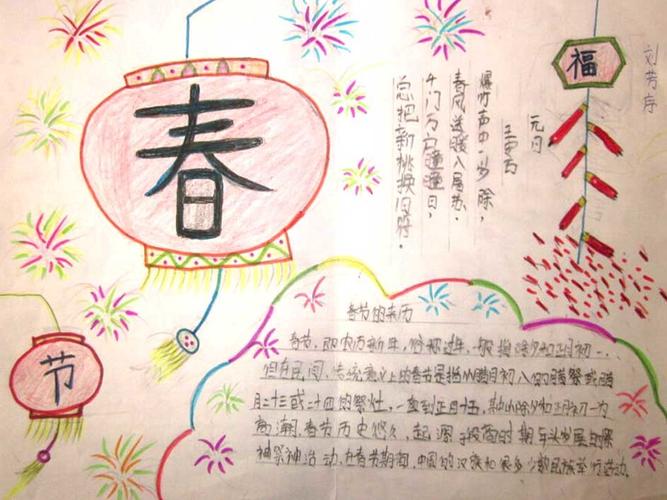 春
节
福
刘芳序
元日
王安石
爆竹声中一岁除,
春风送暖入屠苏.
千门万户曈曈日,
总把新桃换旧符.
春节的来历
春节,即农历新年,俗称过年,一般指除夕和正月初一.
但在民间,传统意义上的春节是指从腊月初八的腊祭或腊
月二十三或二十四的祭灶,一直到正月十五,其中以除夕和正月初一为
高潮.春节历史悠久,起源于殷商时期年头岁尾的祭
神祭祖活动.在春节期间,中国的汉族和很多少数民族举行活动.